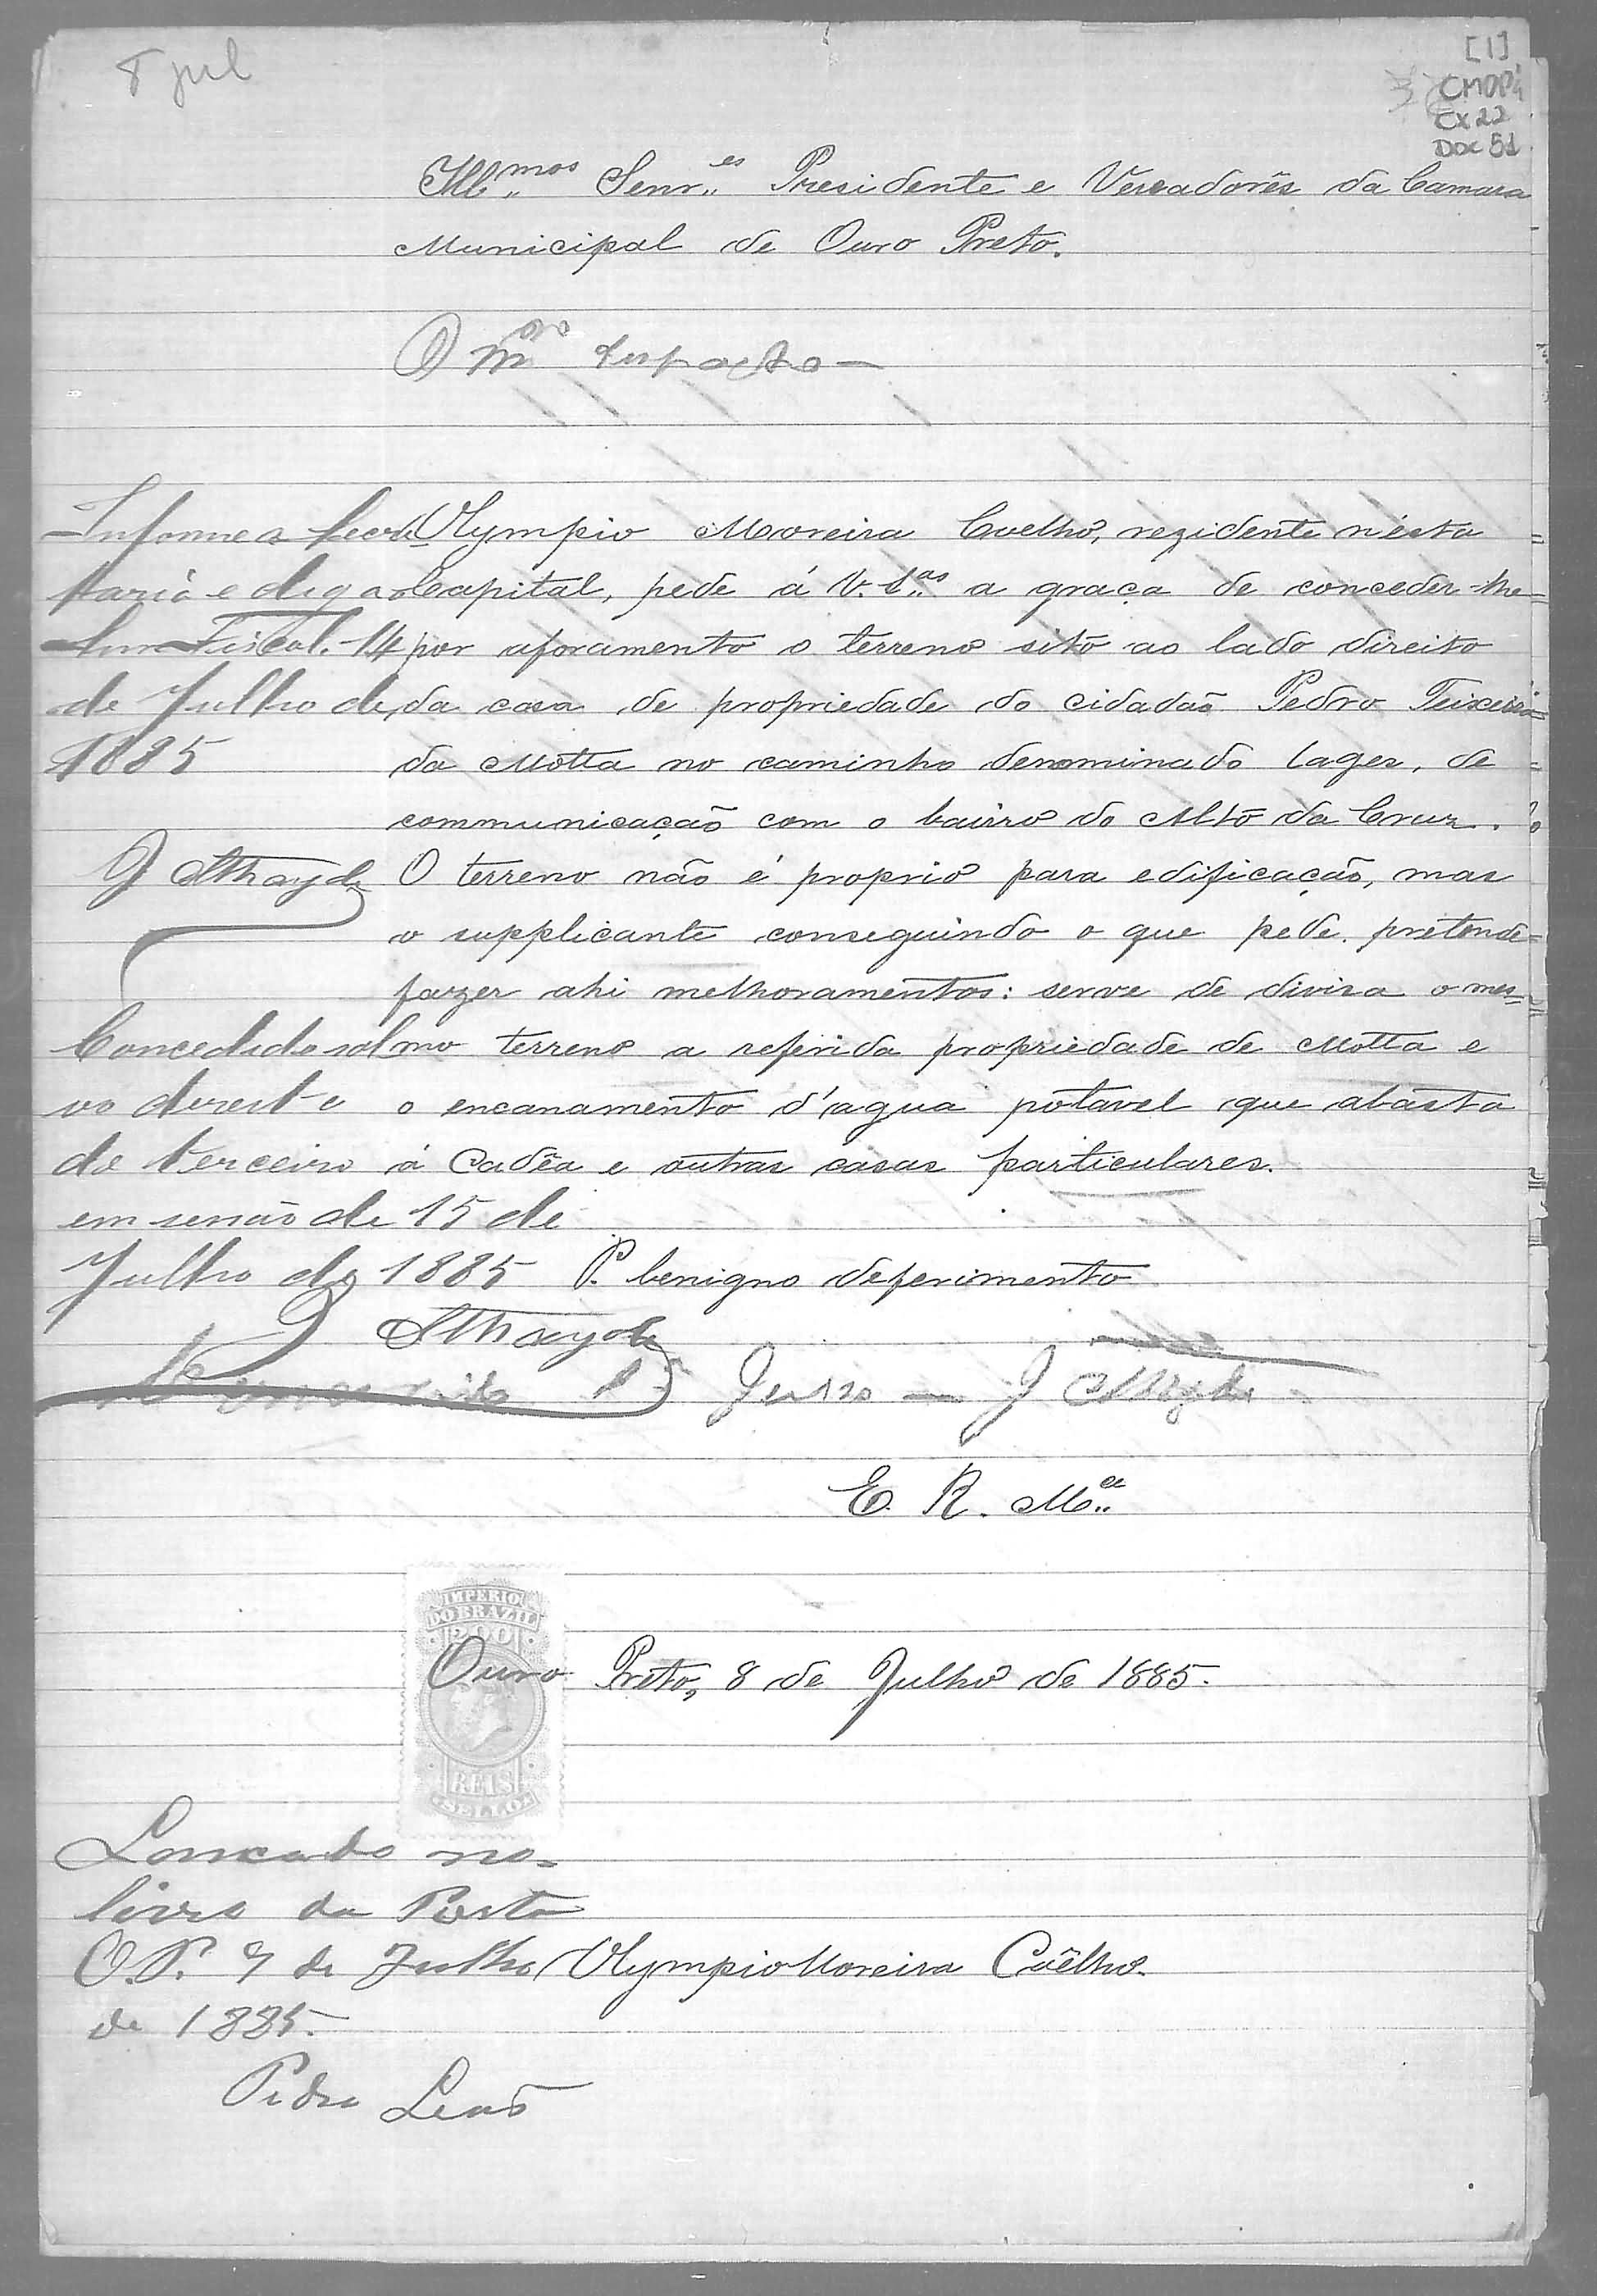 8 jul
[1]
CMOP
CX 22
DOC 51
Ill.mos Senr.es Presidente e Vereadorês da Camara
Municipal de Ouro Preto.
O mmo
Informe a Secre
taria e diga o
Snr Fiscal. 14
de Julho de
1885
J Athayde
Olympio Moreira Coelho, rezidente n'ésta
Capital, pede á V. S.as a graça de conceder-lhe
por aforamento o terreno sito ao lado direito
da casa de propriedade do cidadaõ Pedro Teixeira
da Motta no caminho denominado Lages, de
communicação com o bairro do Alto da Cruz.
O terreno não é proprio para edificação, mas
o supplicante conseguindo o que pede, pretende
fazer ahi melhoramentos: serve de divisa o mes-
mo terreno a referida propriedade de Motta e
o encanamento d'agua potavel que abasta
á Cadêa e outras casas particulares.
Concedido sal
vo direito
de terceiro
em sessão de 15 de
Julho de 1885
J Athayde
P. benigno deferimento
J Athayde
E. R. M.ce
IMPERIO
DO BRAZIL
200
REIS
SELLO
Ouro Preto, 8 de Julho de 1885.
Lançado no
livro da Porta
O.P. 9 de Julho
de 1885.
Pedro Leaõ
Olympio Moreira Coêlho.